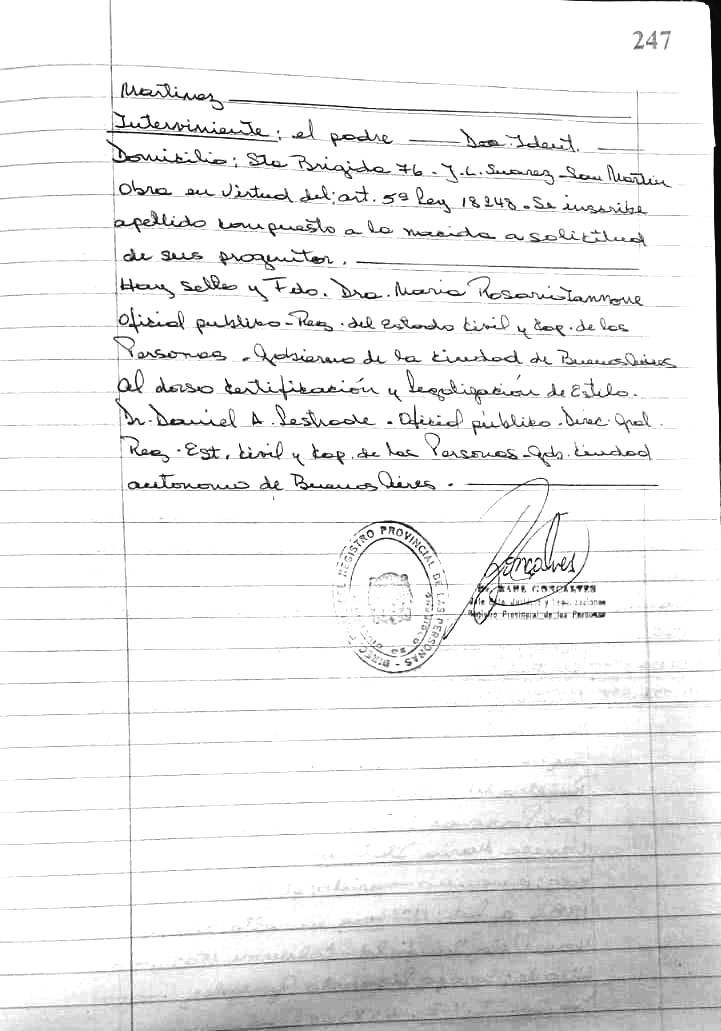 247
Martinez
Interviniente: el padre Doc. Ident.
Domicilio: Sta Brigida 76 - J.L. Suarez - San Martin
Obra en virtud del: art. 5º Ley 18248 - Se inscribe
apellido compuesto a la nacida a solicitud
de sus progenitor.
Hay sello y Fdo. Dra. Maria Rosario Iannone
Oficial publico - Reg. del Estado Civil y Cap. de las
Personas - Gobierno de la Ciudad de Buenos Aires
al dorso certificación y legalización de Estilo.
Dr. Daniel A. Lestrade - Oficial público - Direc. Gral.
Reg. Est. Civil y Cap. de las Personas - Gob. Ciudad
autonoma de Buenos Aires.
REGISTRO PROVINCIAL DE LAS PERSONAS - DIREC
Gonçalves
GONCALVES
Registro Provincial de las Personas